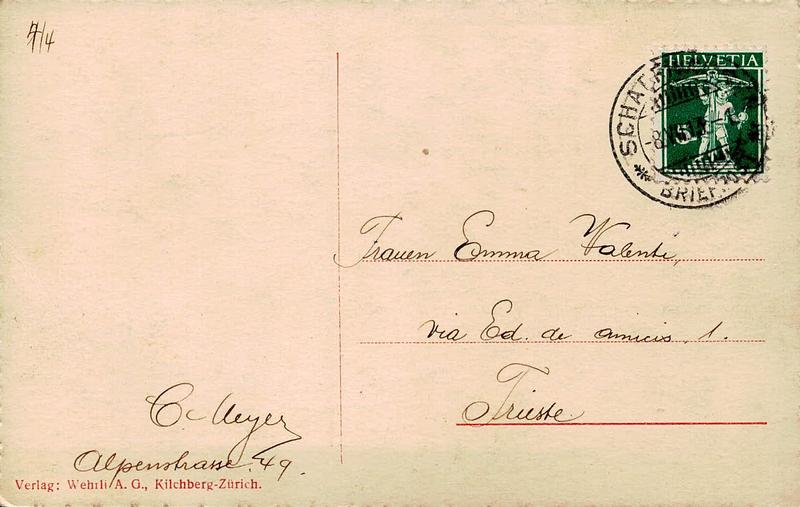 4/4
HELVETIA
SCHAFFH
BRIEF
Frauen Emma Valenti,
via Ed. de amicis, 1.
Trieste
C. Meyer
Alpenstrasse 49.
Verlag: Wehrli A. G., Kilchberg-Zürich.